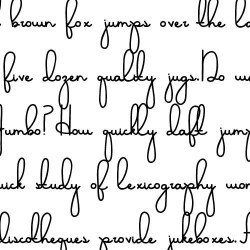 brown fox jumps over the la
five dozen quality jugs. Do wa
Jumbo? How quickly daft jump
uick study of lexicography won
discotheques provide jukeboxes. J